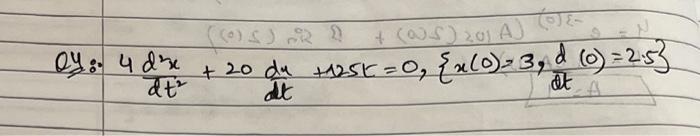 Q4:- 4 d²x/dt² + 20 dx/dt + 125x = 0, {x(0) = 3, d/dt (0) = 2.5}